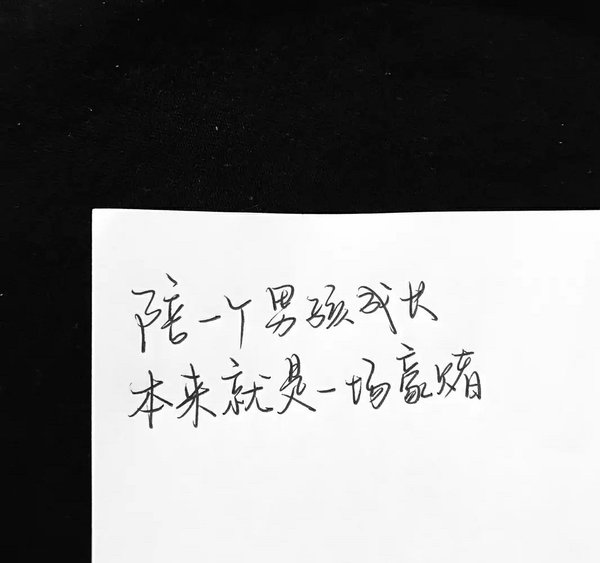 陪一个男孩成长
本来就是一场豪赌